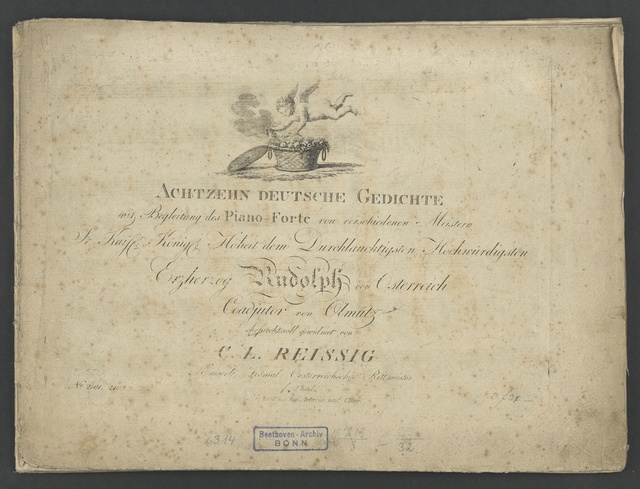 ACHTZEHN DEUTSCHE GEDICHTE
mit Begleitung des Piano-Forte von verschiedenen Meistern
Sr Kayl. Königl. Hoheit dem Durchlauchtigsten Hochwürdigsten
Erzherzog Rudolph von Österreich
Coadjutor von Olmütz
ehrfurchtsvoll gewidmet von
C. L. REISSIG
Rittmeister
6314
Beethoven-Archiv
BONN
32